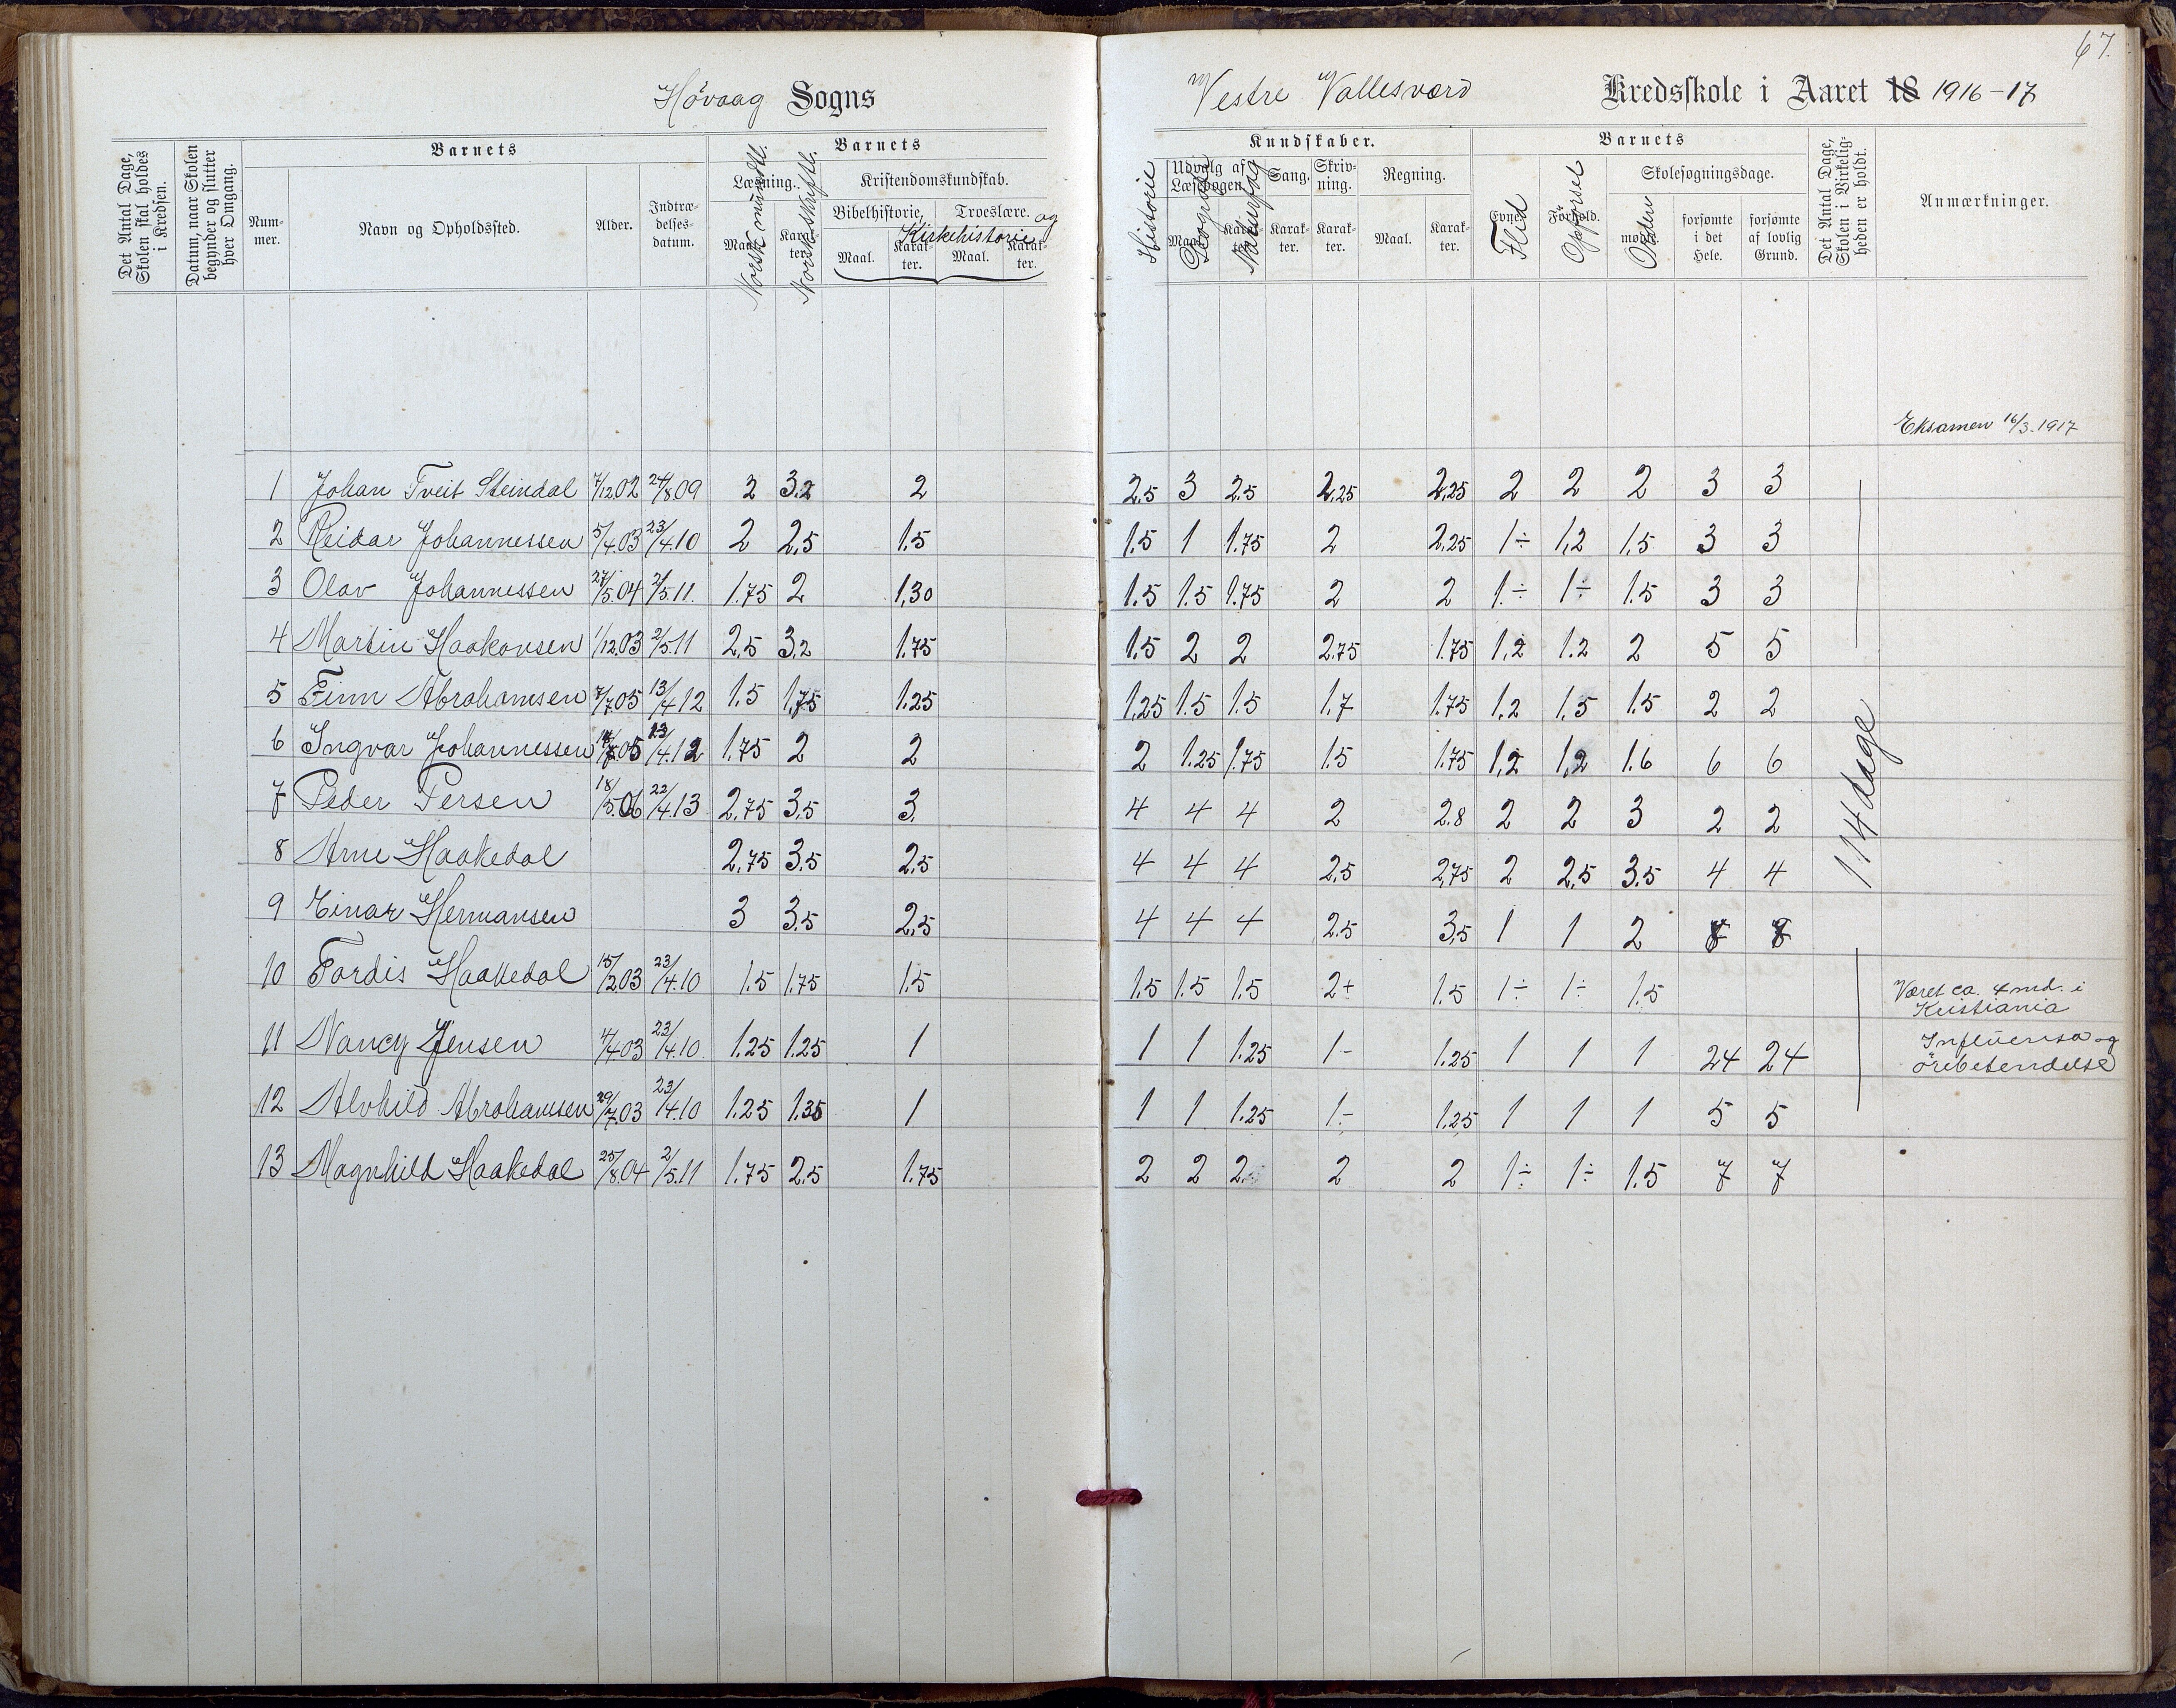 67.
Høvaag Sogns
Vestre Vallesværd Kredsskole i Aaret 18 1916-17
Det Antal Dage, Skolen skal holdes i Kredsen.
Datum, naar Skolen begynder og slutter hver Omgang.
Barnets
Nummer.
Navn og Opholdssted.
Alder.
Indtrædelsesdatum.
Barnets
Læsning.
Maal.
Karakter.
Norsk mundtl.
Norsk skriftl.
Kristendomskundskab.
Bibelhistorie,
Troeslære.
og
Kirkehistorie
Maal.
Karakter.
Maal.
Karakter.
Kundskaber.
Historie
Udvalg af Læsebogen
Maal.
Karakter.
Geografi
Naturfag
Sang.
Karakter.
Skrivning.
Karakter.
Regning.
Maal.
Karakter.
Barnets
Evner
Flid
Forhold.
Opførsel
Skolesøgningsdage.
mødte.
Orden
forsømte i det Hele.
forsømte af lovlig Grund.
Det Antal Dage, Skolen i Virkeligheden er holdt.
Anmærkninger.
Eksamen 16/3-1917
1 Johan Tveit Steindal 7/12.02 24/8.09 2 3.2 2 2.5 3 2.5 2,25 2,25 2 2 2 3 3
2 Reidar Johannessen 5/4.03 23/4.10 2 2,5 1.5 1.5 1 1.75 2 2,25 1÷ 1,2 1,5 3 3
3 Olav Johannessen 27/5.04 2/5.11. 1.75 2 1,30 1.5 1.5 1.75 2 2 1.÷ 1÷ 1.5 3 3
4 Martin Haakonsen 1/12.03 2/5.11 2,5 3,2 1.75 1.5 2 2 2.75 1.75 1,2 1.2 2 5 5
5 Finn Abrahamsen 7/7.05 13/4.12 1.5 1,75 1.25 1,25 1.5 1.5 1,7 1.75 1,2 1,5 1.5 2 2
6 Ingvar Johannessen 05 23/4.12 1,75 2 2 2 1.25 1.75 1.5 1.75 1,2 1,2 1.6 6 6
7 Peder Persen 18/5.06 22/4.13 2,75 3,5 3. 4 4 4 2 2.8 2 2 3 2 2
8 Arne Haakedal 2,75 3.5 2.5 4 4 4 2,5 2,75 2 2,5 3.5 4 4
9 Einar Hermansen 3 3.5 2,5 4 4 4 2.5 3,5 1 1 2 8 8
10 Tordis Haakedal 15/12.03 23/4.10 1.5 1.75 1.5 1.5 1.5 1.5 2+ 1.5 1÷ 1÷ 1.5 Været ca. 4 md. i
Kristiania
11 Nancy Jensen 4/4.03 23/4.10. 1.25 1.25 1 1 1 1.25 1- 1.25 1 1 1 24 24 Influensa og
ørebetendelse
12 Alvhild Abrahamsen 29/7.03 23/4.10 1.25 1.35 1 1 1 1.25 1- 1.25 1 1 1 5 5
13 Magnhild Haakedal 25/8.04 2/5.11 1.75 2.5 1.75 2 2 2 2 2 1÷ 1÷ 1.5 7 7
114 dage